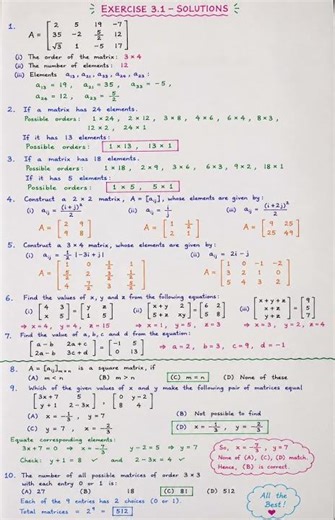 EXERCISE 3.1 – SOLUTIONS
1.
A = [ 2 5 19 -7
35 -2 5/2 12
√3 1 -5 17 ]
(i) The order of the matrix : 3 × 4
(ii) The number of elements : 12
(iii) Elements a₁₃, a₂₁, a₃₃, a₂₄, a₂₃ :
a₁₃ = 19 , a₂₁ = 35 , a₃₃ = -5 ,
a₂₄ = 12 , a₂₃ = 5/2
2. If a matrix has 24 elements.
Possible orders : 1 × 24 , 2 × 12 , 3 × 8 , 4 × 6 , 6 × 4 , 8 × 3 ,
12 × 2 , 24 × 1
If it has 13 elements :
Possible orders : 1 × 13 , 13 × 1
3. If a matrix has 18 elements.
Possible orders : 1 × 18 , 2 × 9 , 3 × 6 , 6 × 3 , 9 × 2 , 18 × 1
If it has 5 elements :
Possible orders : 1 × 5 , 5 × 1
4. Construct a 2 × 2 matrix, A = [aᵢⱼ], whose elements are given by :
(i) aᵢⱼ = (i+j)²/2 (ii) aᵢⱼ = i/j (iii) aᵢⱼ = (i+2j)²/2
A = [ 2 9 A = [ 1 1/2 A = [ 9 25
9 8 ] 2 1 ] 25 49 ]
5. Construct a 3 × 4 matrix, whose elements are given by :
(i) aᵢⱼ = 1/2 |-3i+j| (ii) aᵢⱼ = 2i - j
1 0 -1 -2
3 2 1 0
5 4 3 2
6. Find the values of x, y and z from the following equations :
(i) [ 4 3 = [ y z (ii) [ x+y 2 = [ 6 2 (iii) [ x+y+z = [ 9
x 5 ] 1 5 ] 5+z xy ] 5 8 ] x+z 5
y+z ] 7 ]
⇒ x = 4, y = 4, z = 15 ⇒ x = 1, y = 5, z = 3 ⇒ x = 3, y = 2, z = 4
7. Find the value of a, b, c and d from the equation :
[ a-b 2a+c = [ -1 5 ⇒ a = 2, b = 3, c = 9, d = -1
2a-b 3c+d ] 0 13 ]
8. A = [aᵢⱼ] is a square matrix, if
(A) m < n (B) m > n (C) m = n (D) None of these
9. Which of the given values of x and y make the following pair of matrices equal
[ 3x+7 5 , [ 0 y-2
y+1 2-3x ] 8 4 ]
(A) x = -1/3 , y = 7 (B) Not possible to find
(C) y = 7 , x = -2/3 (D) x = -1/3 , y = -2/3
Equate corresponding elements :
3x + 7 = 0 ⇒ x = -7/3 , y - 2 = 5 ⇒ y = 7
Check : y + 1 = 8 ✓ and 2 - 3x = 4 ✓
So, x = -7/3 , y = 7
None of (A), (C), (D) match.
Hence, (B) is correct.
10. The number of all possible matrices of order 3 × 3
with each entry 0 or 1 is :
(A) 27 (B) 18 (C) 81 (D) 512
Each of the 9 entries has 2 choices (0 or 1).
Total matrices = 2⁹ = 512
All the
Best!